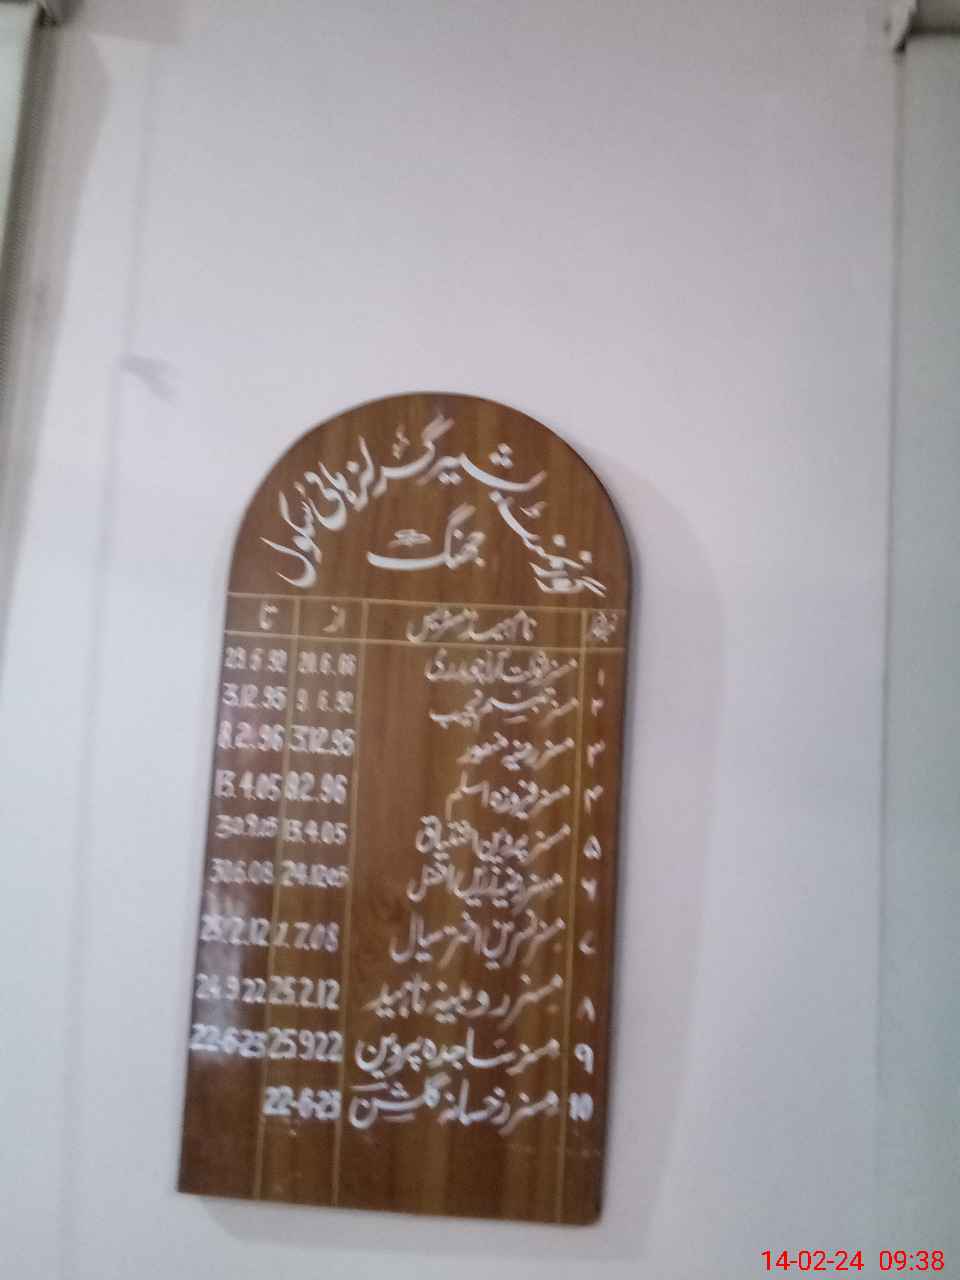 گورنمنٹ نصرت بشیر گرلز ہائی سکول
جھنگ
نمبر نام ہیڈ مسٹریس از تا
۱ مسز 20.6.66 29.6.92
۲ مسز تسنیم نجیب 9 6.92 3.12.95
۳ مسز رضیہ 3.12.95 8.2.96
۴ مسز فیروزہ اسلم 8.2.96 13.4.05
۵ مسز پروین اشتیاق 13.4.05 30.9.05
۶ مسز افضل 24.12.05 30.6.08
۷ مسز نسرین اختر سیال 1.7.08 25.2.12
۸ مسز روبینہ ناہید 25.2.12 24.9.22
۹ مسز ساجدہ پروین 25.9.22 22-6-23
۱۰ مسز رخسانہ گلشن 22-6-23
14-02-24 09:38